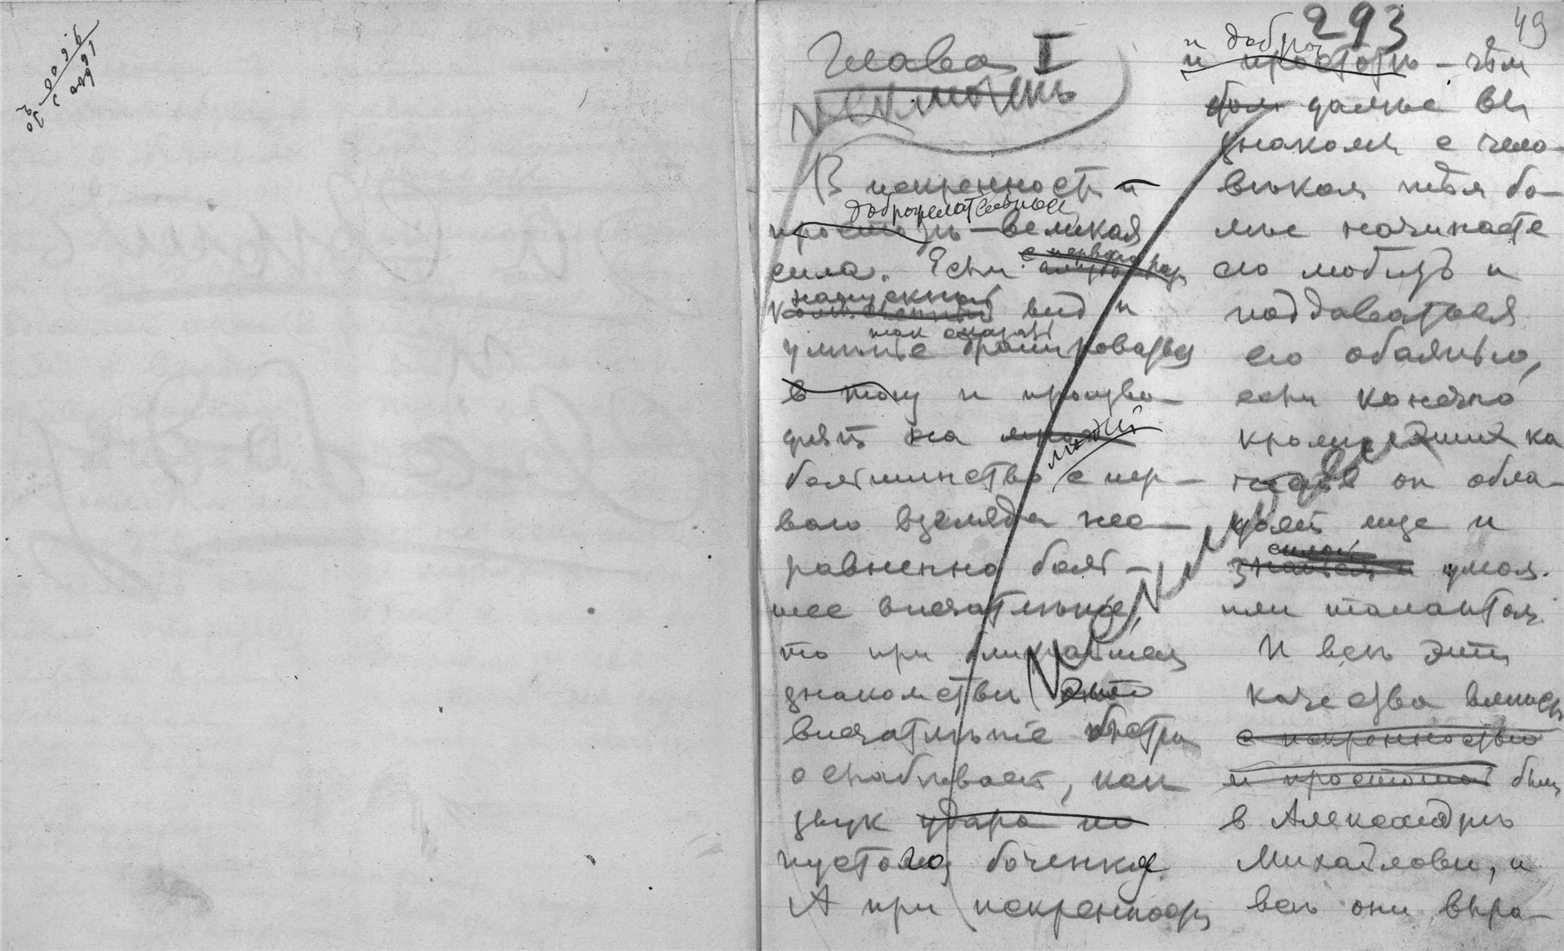 293
49
Глава I
В искренности и
доброжелательности
простотѣ — великая
сила. Если с первого
напускной вид и
так сказать
умѣнье драпироваться
в тогу и произво-
дят на людей
большинство с пер-
ваго взгляда нес-
равненно боль-
шее впечатлѣніе,
то при ближайшем
знакомствѣ это
впечатлѣніе быстро
ослабѣвает, как
звук удара по
пустого боченка.
А при искренности
и добро
и простотѣ — чѣм
дальше вы
знакомы с чело-
вѣком тѣм бо-
лѣе начинаете
его любить и
поддаваться
его обаянью,
если конечно
кромѣ этих ка-
честв он обла-
дает еще и
силой
умом
или талантом.
И всѣ эти
качества вмѣстѣ
с искренностью
и простотой были
в Александрѣ
Михайловичѣ, и
всѣ они выра-